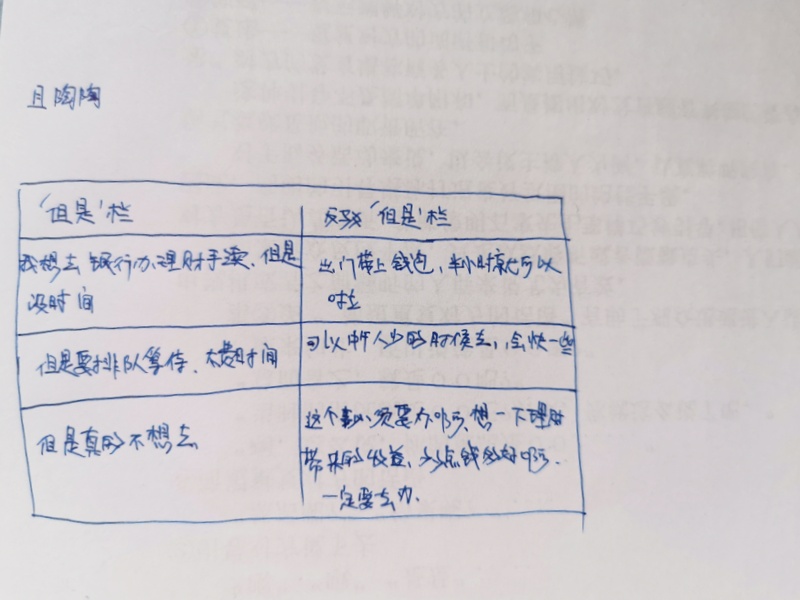 且陶陶
"但是"栏
反驳"但是"栏
我想去银行办理财手续.但是
没时间
出门带上钱包,半小时就可以
啦
但是要排队等待.太费时间
可以中午人少的时候去,会快一些
但是真的不想去
这个事必须要办啊,想一下理财
带来的收益,多点钱多好啊.
一定要去办.